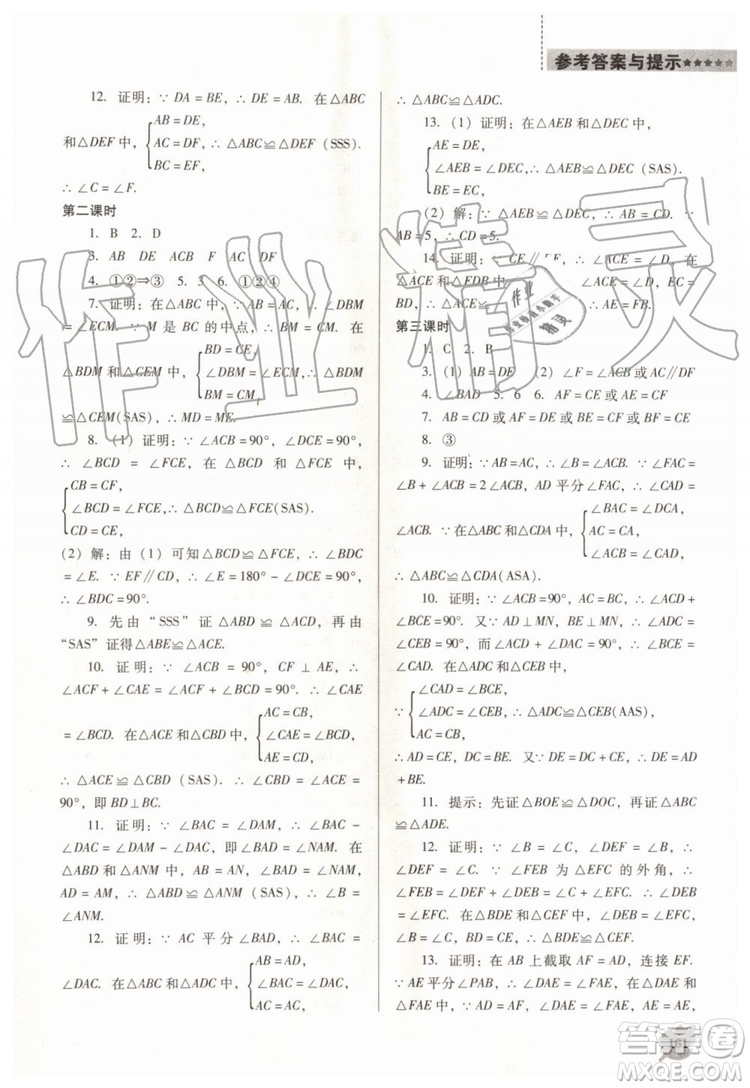 参考答案与提示★★★★★
12. 证明：∵ DA = BE，∴ DE = AB. 在△ABC
和△DEF 中，{AB = DE，
AC = DF，∴ △ABC≌△DEF (SSS).
BC = EF，
∴ ∠C = ∠F.
第二课时
1. B 2. D
3. AB DE ACB F AC DF
4. ①②⇒③ 5. 5 6. ①②④
7. 证明：∵ AB = AC，∴ ∠DBM
= ∠ECM. ∵ M 是 BC 的中点，∴ BM = CM. 在
△BDM 和△CEM 中，{BD = CE，
∠DBM = ∠ECM，∴ △BDM
BM = CM，
≌△CEM(SAS)，∴ MD = ME.
8. (1) 证明：∵ ∠ACB = 90°，∠DCE = 90°，
∴ ∠BCD = ∠FCE，在△BCD 和△FCE 中，
{CB = CF，
∠BCD = ∠FCE，∴ △BCD≌△FCE(SAS).
CD = CE，
(2) 解：由 (1) 可知△BCD≌△FCE，∴ ∠BDC
= ∠E. ∵ EF∥CD，∴ ∠E = 180° − ∠DCE = 90°，
∴ ∠BDC = 90°.
9. 先由 “SSS” 证△ABD≌△ACD，再由
“SAS” 证得△ABE≌△ACE.
10. 证明：∵ ∠ACB = 90°，CF⊥AE，∴
∠ACF + ∠CAE = ∠ACF + ∠BCD，∴ ∠CAE
= ∠BCD. 在△ACE 和△CBD 中，{AC = CB，
∠CAE = ∠BCD，
AE = CD，
∴ △ACE≌△CBD (SAS). ∴ ∠CBD = ∠ACE =
90°，即 BD⊥BC.
11. 证明：∵ ∠BAC = ∠DAM，∴ ∠BAC −
∠DAC = ∠DAM − ∠DAC，即∠BAD = ∠NAM. 在
△ABD 和△ANM 中，AB = AN，∠BAD = ∠NAM，
AD = AM，∴ △ABD≌△ANM (SAS)，∴ ∠B =
∠ANM.
12. 证明：∵ AC 平分∠BAD，∴ ∠BAC =
∠DAC. 在△ABC 和△ADC 中，{AB = AD，
∠BAC = ∠DAC，
AC = AC，
∴ △ABC≌△ADC.
13. (1) 证明：在△AEB 和△DEC 中，
{AE = DE，
∠AEB = ∠DEC，∴ △AEB≌△DEC (SAS).
BE = EC，
(2) 解：∵ △AEB≌△DEC，∴ AB = CD. ∵
AB = 5，∴ CD = 5.
14. 证明：∵ CE∥
△ACE 和△FDB 中
∴ AE = FB.
第三课时
1. C 2. B
3. (1) AB = DE (2) ∠F = ∠ACB 或 AC∥DF
4. ∠B = ∠BAD 5. 6 6. AF = CE 或 AE = CF
7. AB = CD 或 AF = DE 或 BF = CE 或 BE = CF
8. ③
9. 证明：∵ AB = AC，∴ ∠B = ∠ACB. ∵ ∠FAC =
∠B + ∠ACB = 2∠ACB，AD 平分∠FAC，∴ ∠CAD =
∠ACB. ∵ 在△ABC 和△CDA 中，{∠BAC = ∠DCA，
AC = AC，
∠ACB = ∠CAD，
∴ △ABC≌△CDA(ASA).
10. 证明：∵ ∠ACB = 90°，AC = BC，∴ ∠ACD +
∠BCE = 90°. 又∵ AD⊥MN，BE⊥MN，∴ ∠ADC =
∠CEB = 90°，而∠ACD + ∠DAC = 90°，∴ ∠BCE =
∠CAD. 在△ADC 和△CEB 中，
∵{∠CAD = ∠BCE，
∠ADC = ∠CEB，∴ △ADC≌△CEB(AAS)，
AC = CB，
∴ AD = CE，DC = BE. 又∵ DE = DC + CE，∴ DE = AD
+ BE.
11. 提示：先证△BOE≌△DOC，再证△ABC
≌△ADE.
12. 证明：∵ ∠B = ∠C，∠DEF = ∠B，∴
∠DEF = ∠C. ∵ ∠FEB 为△EFC 的外角，∴
∠FEB = ∠DEF + ∠DEB = ∠C + ∠EFC. ∴ ∠DEB
= ∠EFC. 又∵ ∠B = ∠C，BD = CE，∴ △BDE≌
△CEF，∴ DE = EF.
13. 证明：在 AB 上截取 AF = AD，连接 EF.
∵ AE 平分∠PAB，∴ ∠DAE = ∠FAE. 在△DAE 和
△FAE 中，∵ AD = AF，∠DAE = ∠FAE，AE = AE，
101
作业精灵
作业
精灵
答案圈
MXQE.COM